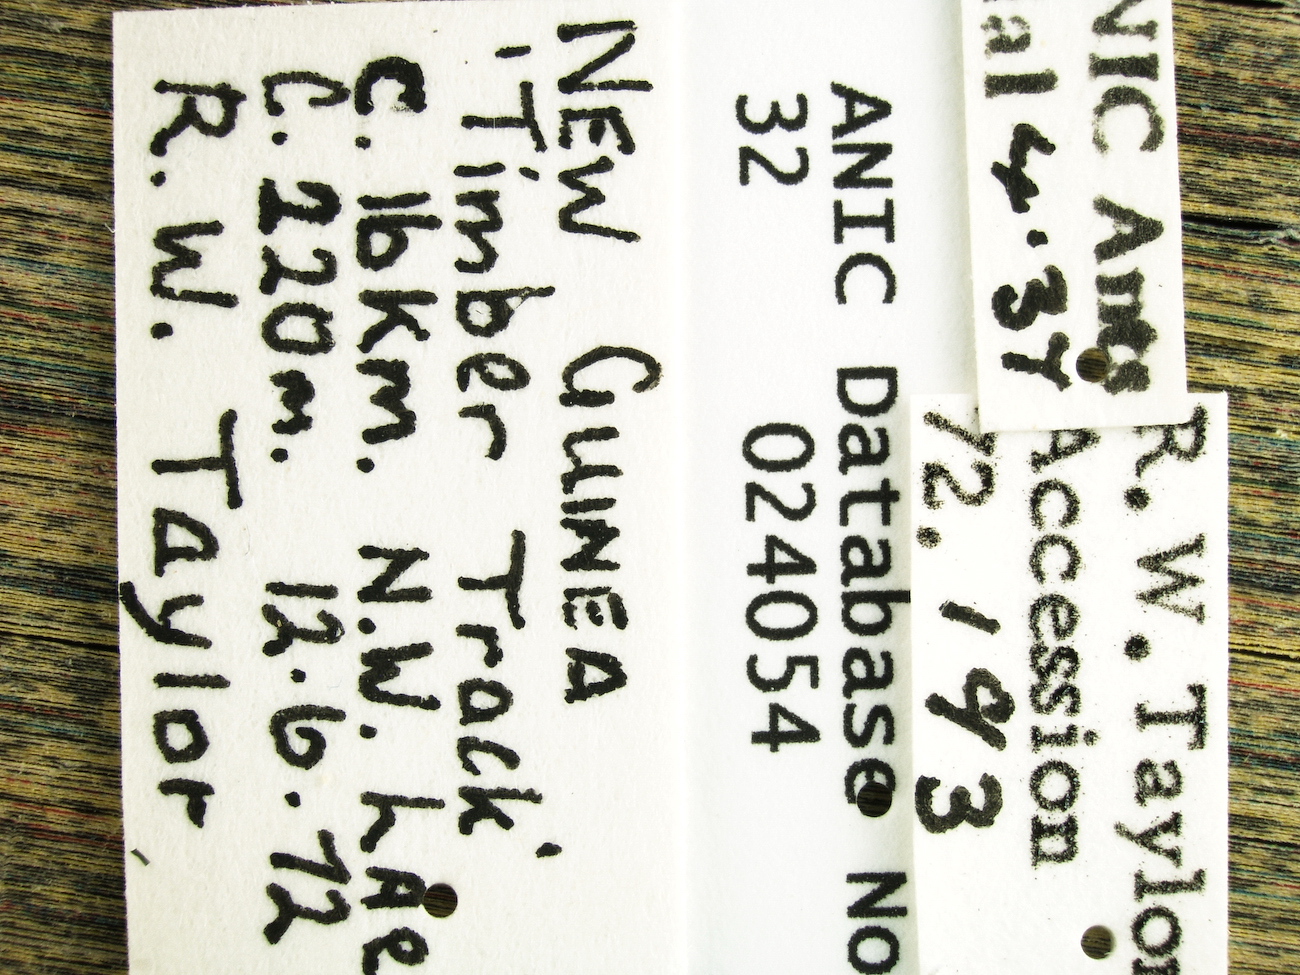 NEW GUINEA
'Timber Track'
C. 16km. N.W. Lae
C. 220m. 12.6.72
R. W. Taylor
ANIC Database No
32 024054
NIC Ants
ial 4.37
R. W. Taylor
Accession
72. 193